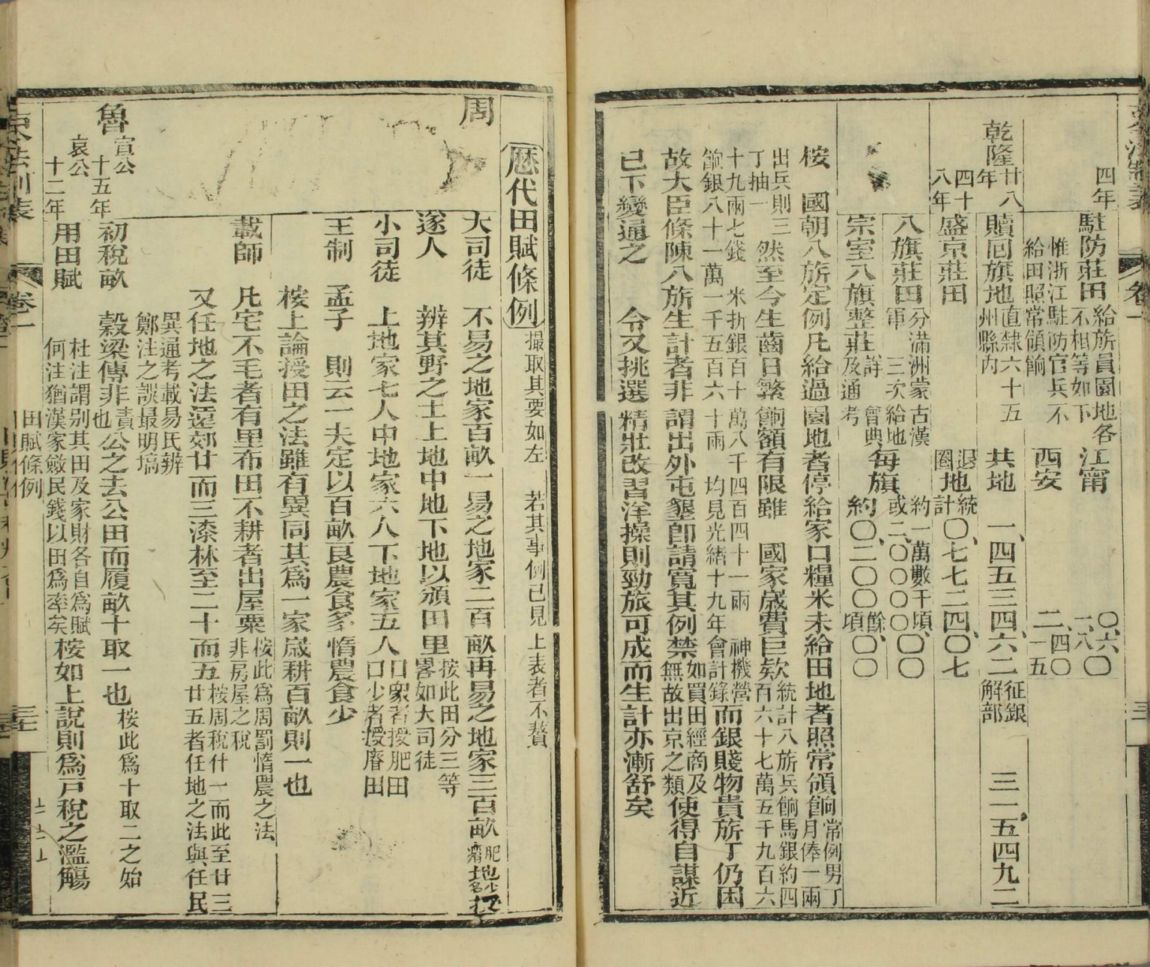 四年 駐防莊田 給旂員園地各不相等如下 惟浙江駐防官兵不給田照常領餉 江甯 〇六〇 一、八〇 西安 二、四〇 二一五
乾隆廿八年 贖囘旗地 直隸六十五州縣內 共地 一、四五三四六二 征銀解部 三一五四九二
四十八年 盛京莊田 退圈地 統計〇、七七二四〇七
八旗莊田 分滿洲蒙古漢軍 三次給地 每旗 約一萬數千頃、或二、〇〇〇〇〇
宗室八旗整莊 詳會典及通考 約〇二〇〇〇 餘頃
桉 國朝八旂定例凡給過園地者停給家口糧米未給田地者照常領餉 常例男丁月俸一兩
出兵則三丁抽一 然至今生齒日繁餉額有限雖 國家歲費巨欵 統計八旂兵餉馬銀約四百六十七萬五千九百六
十九兩七錢 米折銀百十萬八千四百四十一兩 神機營餉銀八十一萬一千五百六十兩 均見光緒十九年會計錄 而銀賤物貴旂丁仍困
故大臣條陳八旂生計者非謂出外屯墾卽請寬其例禁 如買田經商及無故出京之類 使得自謀近
已下變通之 令又挑選精壯改習洋操則勁旅可成而生計亦漸舒矣
歷代田賦條例 撮取其要如左 若其事例已見上表者不贅
周 大司徒 不易之地家百畝一易之地家二百畝再易之地家三百畝
遂人 辨其野之土上地中地下地以頒田里 按此田分三等畧如大司徒
小司徒 上地家七人中地家六人下地家五人 口衆者授肥田口少者授瘠田
王制 孟子 則云一夫定以百畝良農食多惰農食少
桉上論授田之法雖有異同其爲一家歲耕百畝則一也
載師 凡宅不毛者有里布田不耕者出屋粟 桉此爲周罰惰農之法非房屋之稅
又任地之法遠郊廿而三漆林至二十而五 桉周稅什一而此至廿三廿五者任地之法與任民
異通考載易氏辨鄭注之誤最明塙
魯 宣公十五年 初稅畝 穀梁傳非責也公之去公田而履畝十取一也 桉此爲十取二之始
哀公十二年 用田賦 杜注謂別其田及家財各自爲賦何注猶漢家斂民錢以田爲率矣 桉如上說則爲戶稅之濫觴
田賦條例
卷一